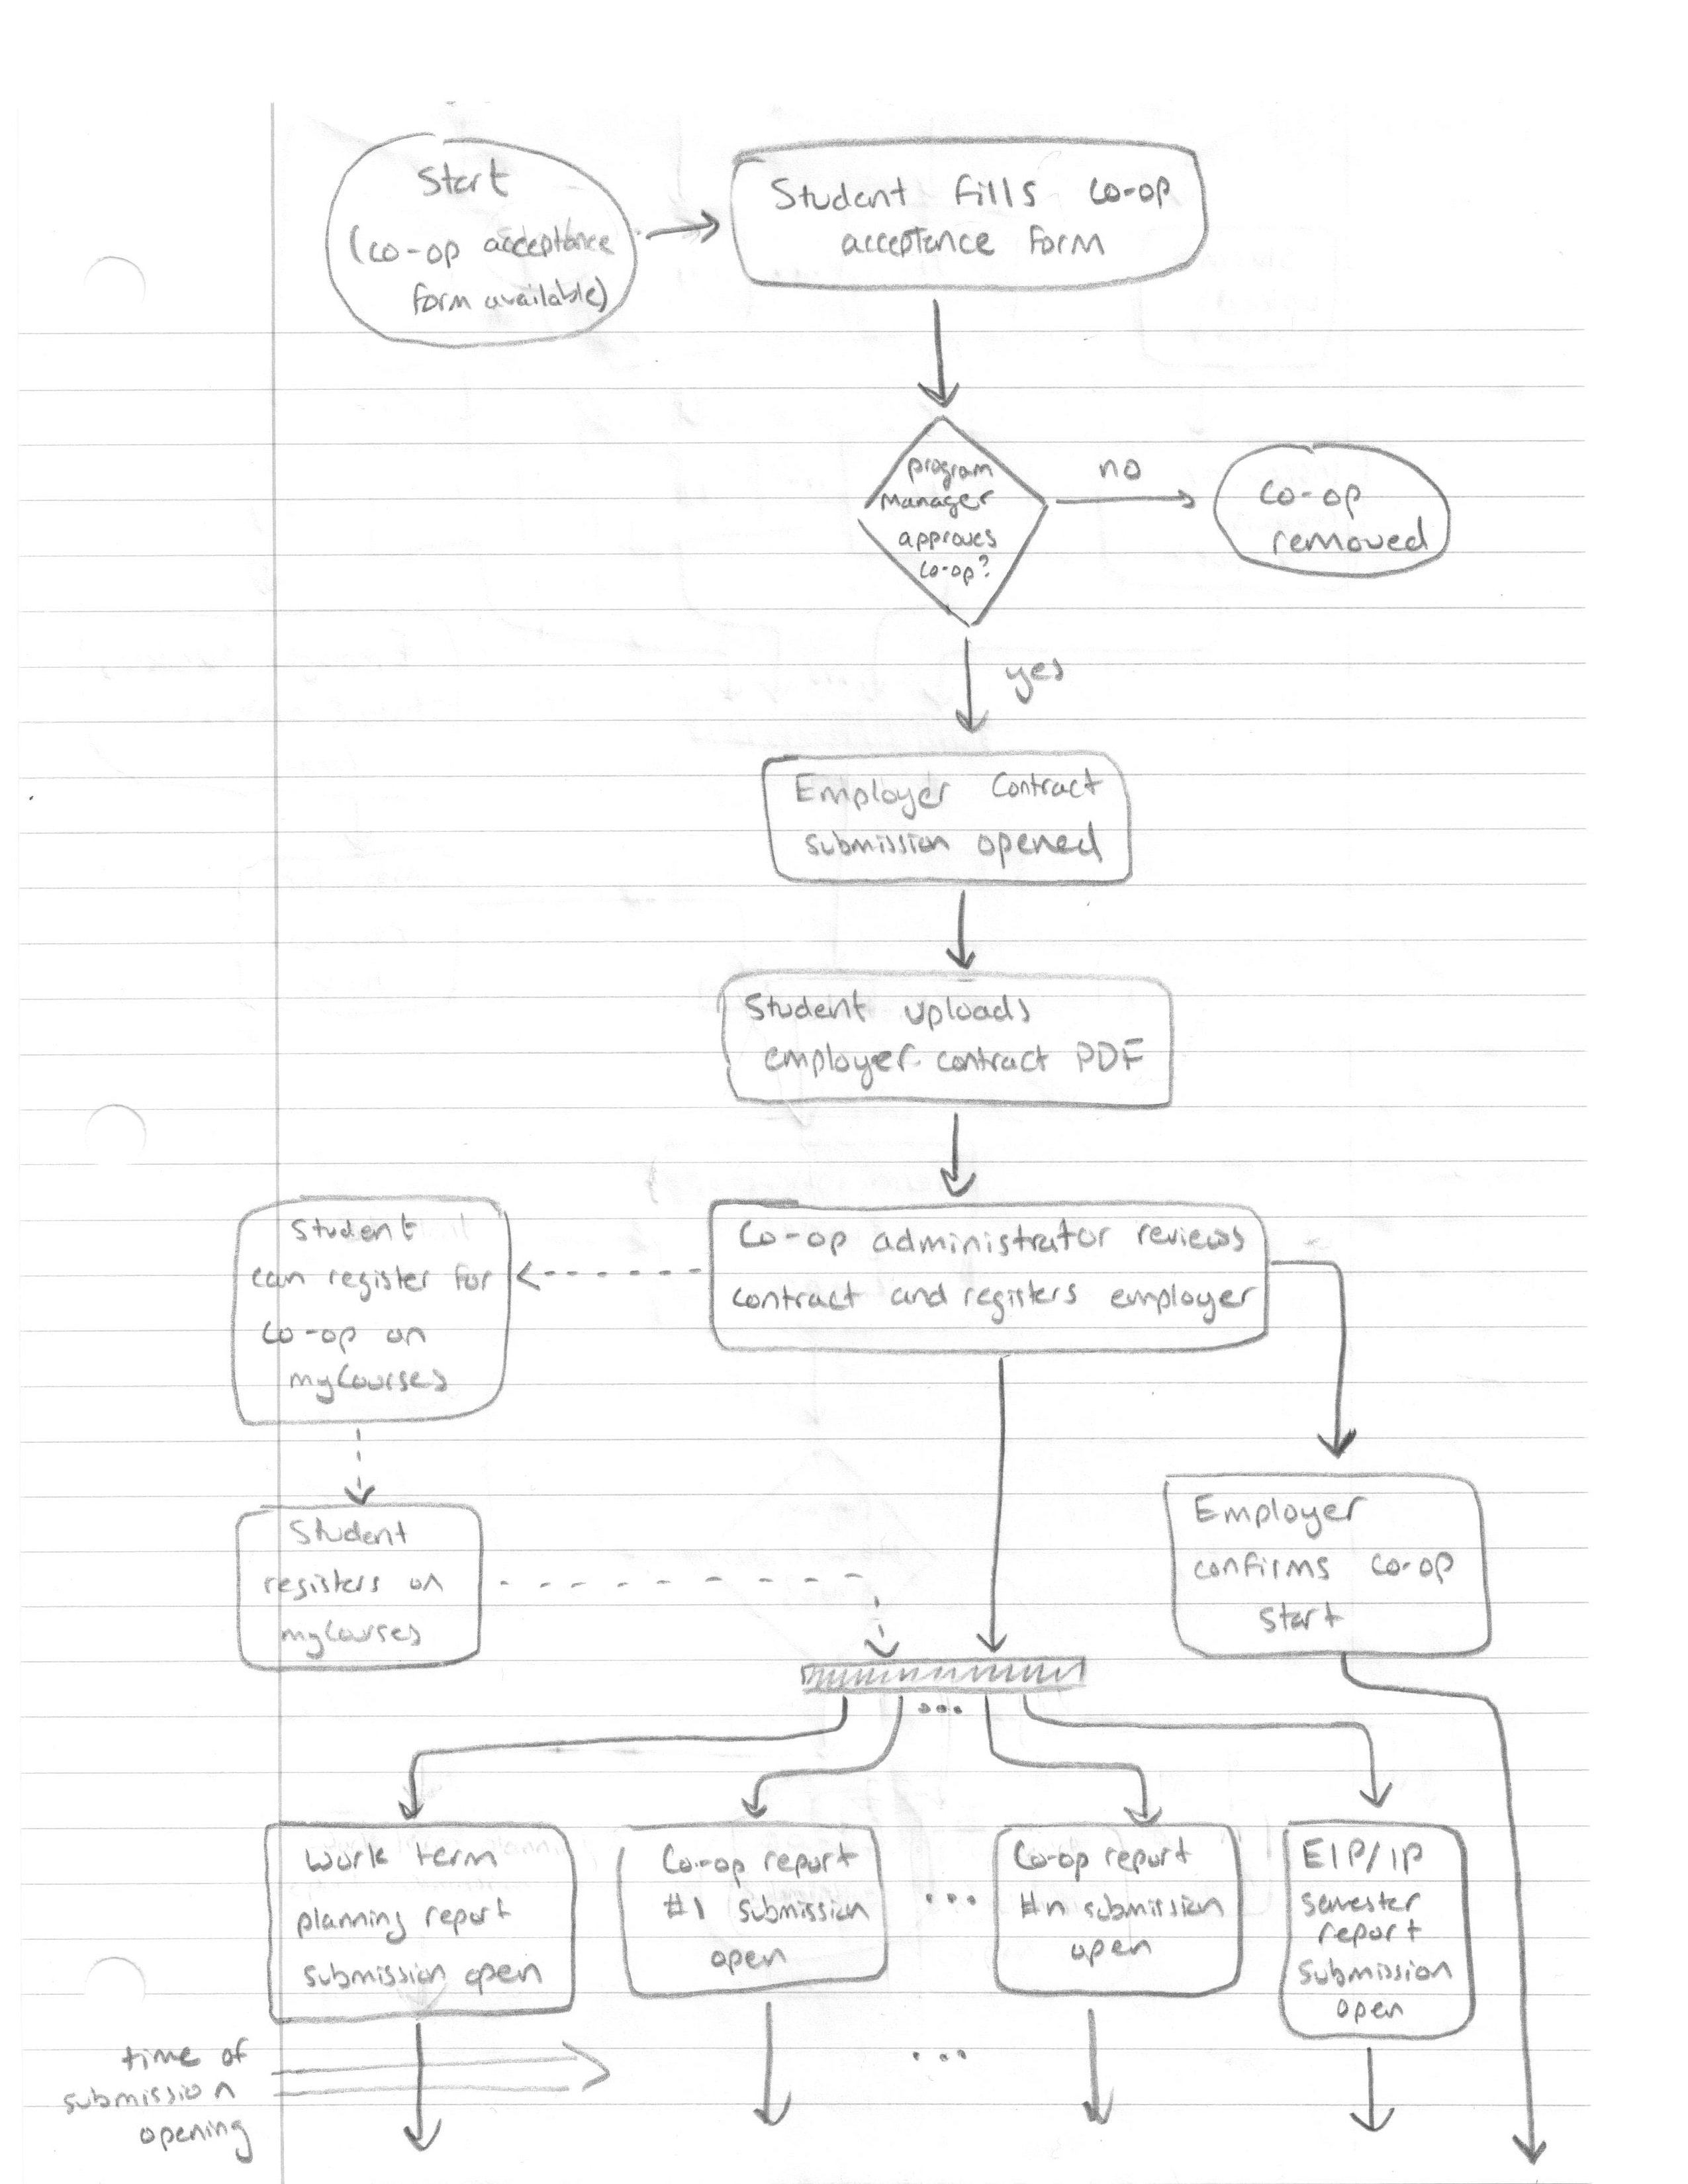 Start
(co-op acceptance
form available)
Student fills co-op
acceptance form
program
manager
approves
co-op?
no
co-op
removed
yes
Employer Contract
submission opened
Student uploads
employer contract PDF
Co-op administrator reviews
contract and registers employer
Student
can register for
co-op on
myCourses
Student
registers on
myCourses
Employer
confirms co-op
start
...
Work term
planning report
submission open
Co-op report
#1 submission
open
...
Co-op report
#n submission
open
EIP/IP
semester
report
submission
open
time of
submission
opening
...